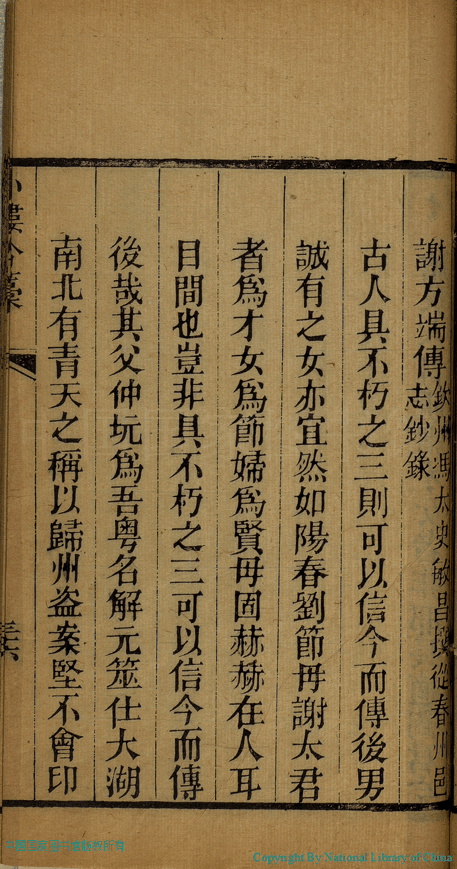 謝方端傳欽州馮太史敏昌撰從春州邑
志鈔錄
古人具不朽之三則可以信今而傳後男
誠有之女亦宜然如陽春劉節毋謝太君
者為才女為節婦為賢毋固赫赫在人耳
目間也豈非具不朽之三可以信今而傳
後哉其父仲坃為吾粵名解元筮仕大湖
南北有青天之稱以歸州盗案堅不會印
小樓吟藁
三六
中國國家圖書館版權所有
Copyright By National Library of China